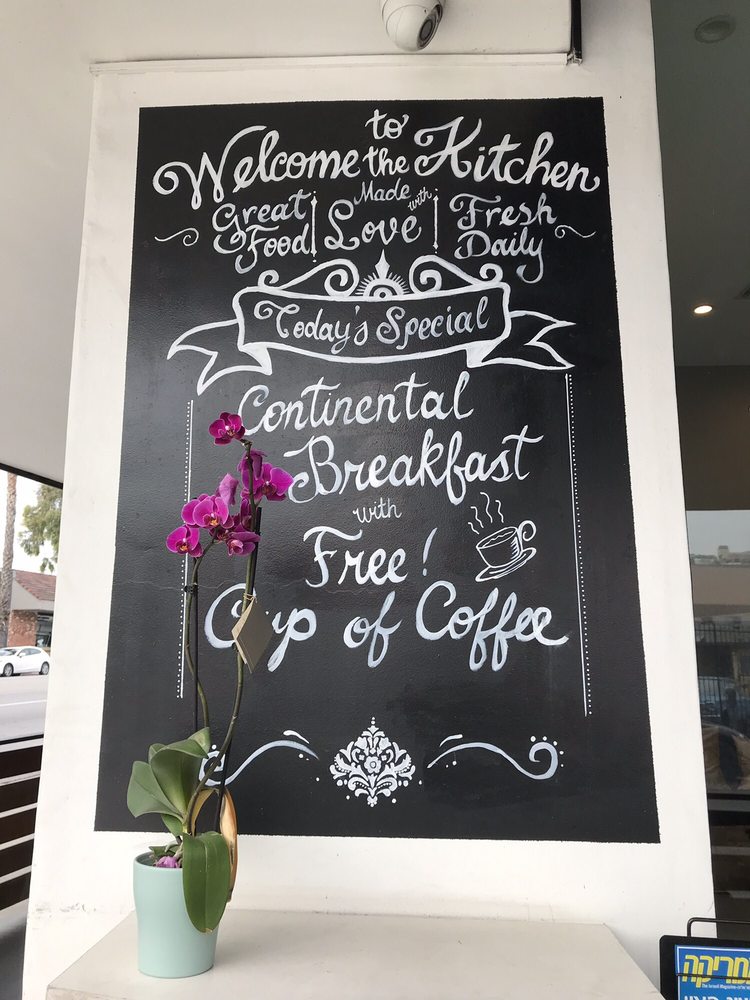 Welcome to the Kitchen
Great Food
Made with Love
Fresh Daily
Today's Special
Continental
Breakfast
with
Free!
Cup of Coffee
The Israeli Magazine